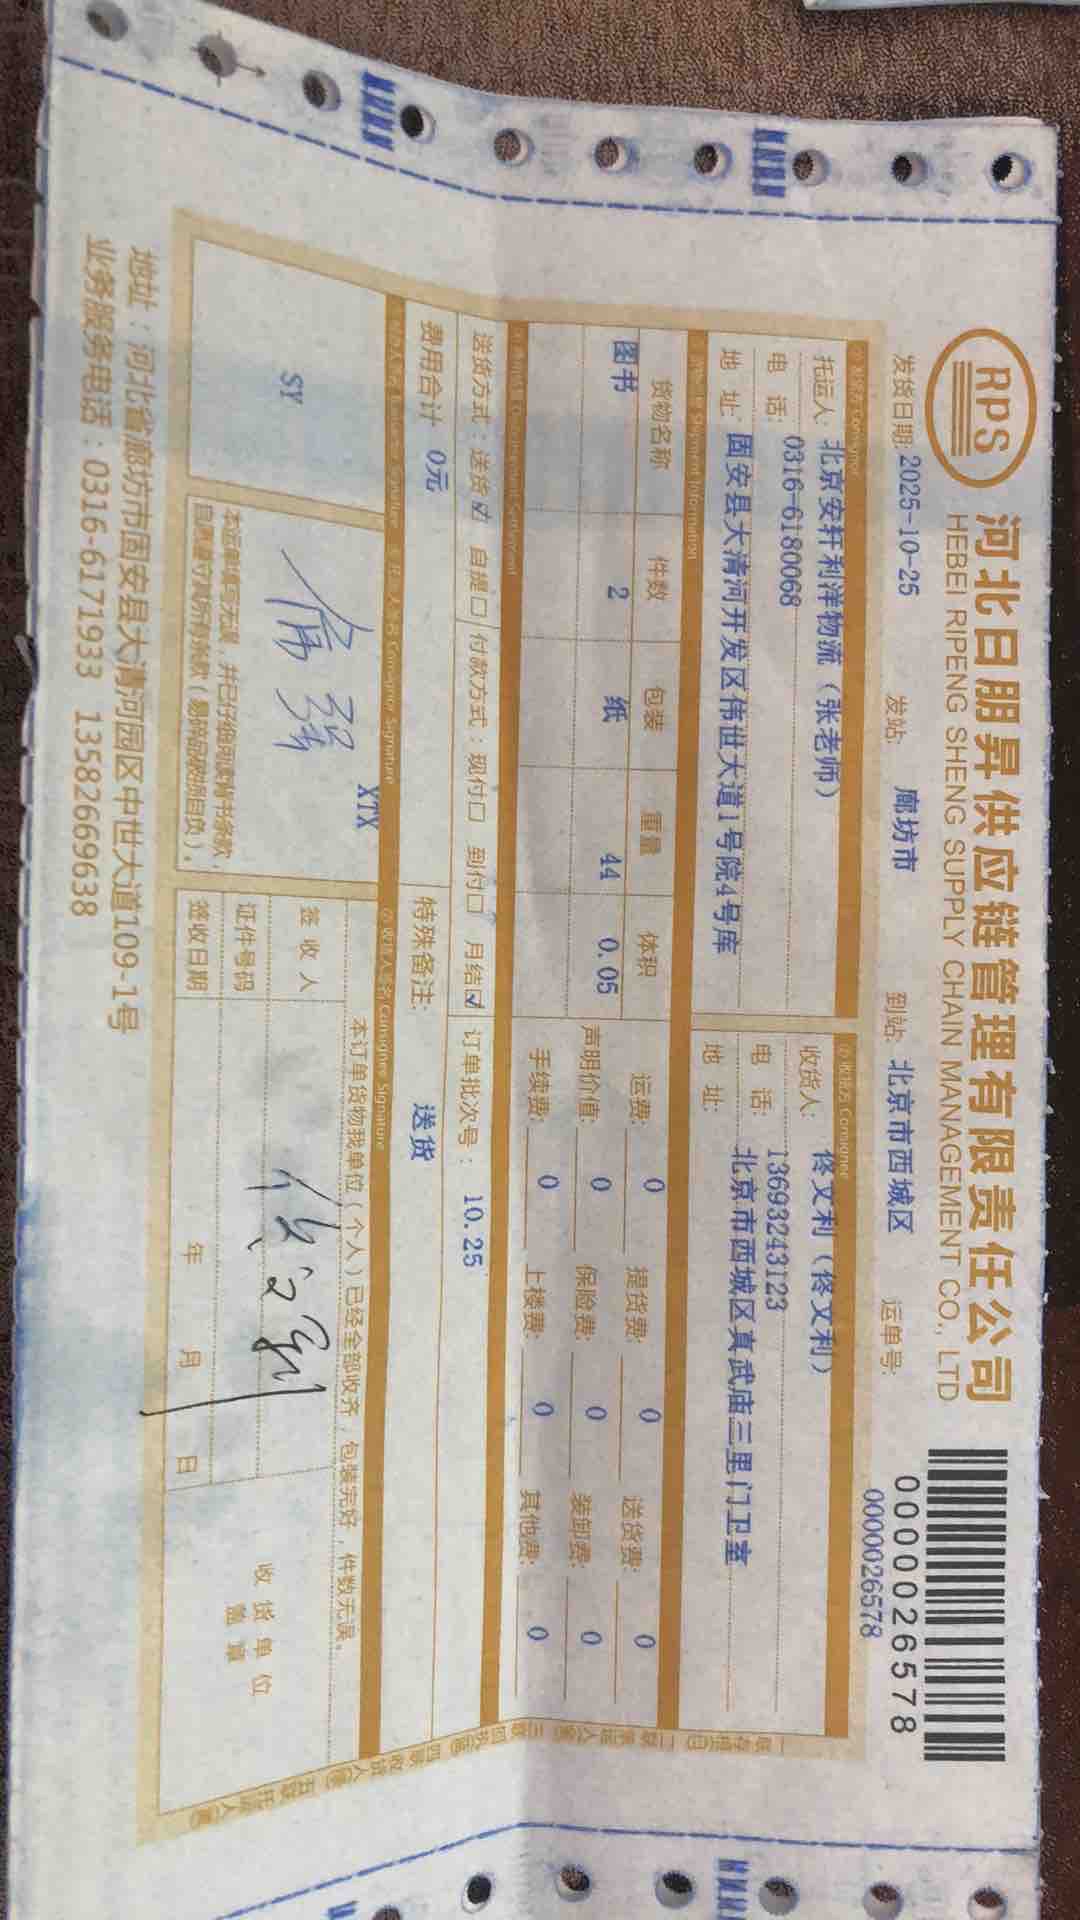 RPS
河北日朋昇供应链管理有限责任公司
HEBEI RIPENG SHENG SUPPLY CHAIN MANAGEMENT CO., LTD
0000026578
发货日期: 2025-10-25 发站: 廊坊市 到站: 北京市西城区 运单号: 0000026578
托运人: 北京安轩利洋物流（张老师）
电 话: 0316-6180068
地 址: 固安县大清河开发区伟世大道1号院4号库
收货方 Consignee
收货人: 佟文利（佟文利）
电 话: 13693243123
地 址: 北京市西城区真武庙三里门卫室
Shipment Information
货物名称 件数 包装 重量 体积
图书 2 纸 44 0.05
运费: 0 提货费: 0 送货费: 0
声明价值: 0 保险费: 0 装卸费: 0
手续费: 0 上楼费: 0 其他费: 0
送货方式：送货☑ 自提口 付款方式：现付口 到付口 月结☑ 订单批次号：10.25
费用合计 0元 特殊备注: 送货
Consignor Signature
收货人签名 Consignee Signature
SY
XTX
本运单填写无误，并已仔细阅读背书条款
自愿遵守其所有条款（易碎品破损自负）。
本订单货物我单位（个人）已经全部收齐，包装完好，件数无误。
签 收 人 佟文利
证件号码
签收日期 年 月 日
收 货 单 位
盖 章
地址：河北省廊坊市固安县大清河园区中世大道109-1号
业务服务电话：0316-6171933 13582669638